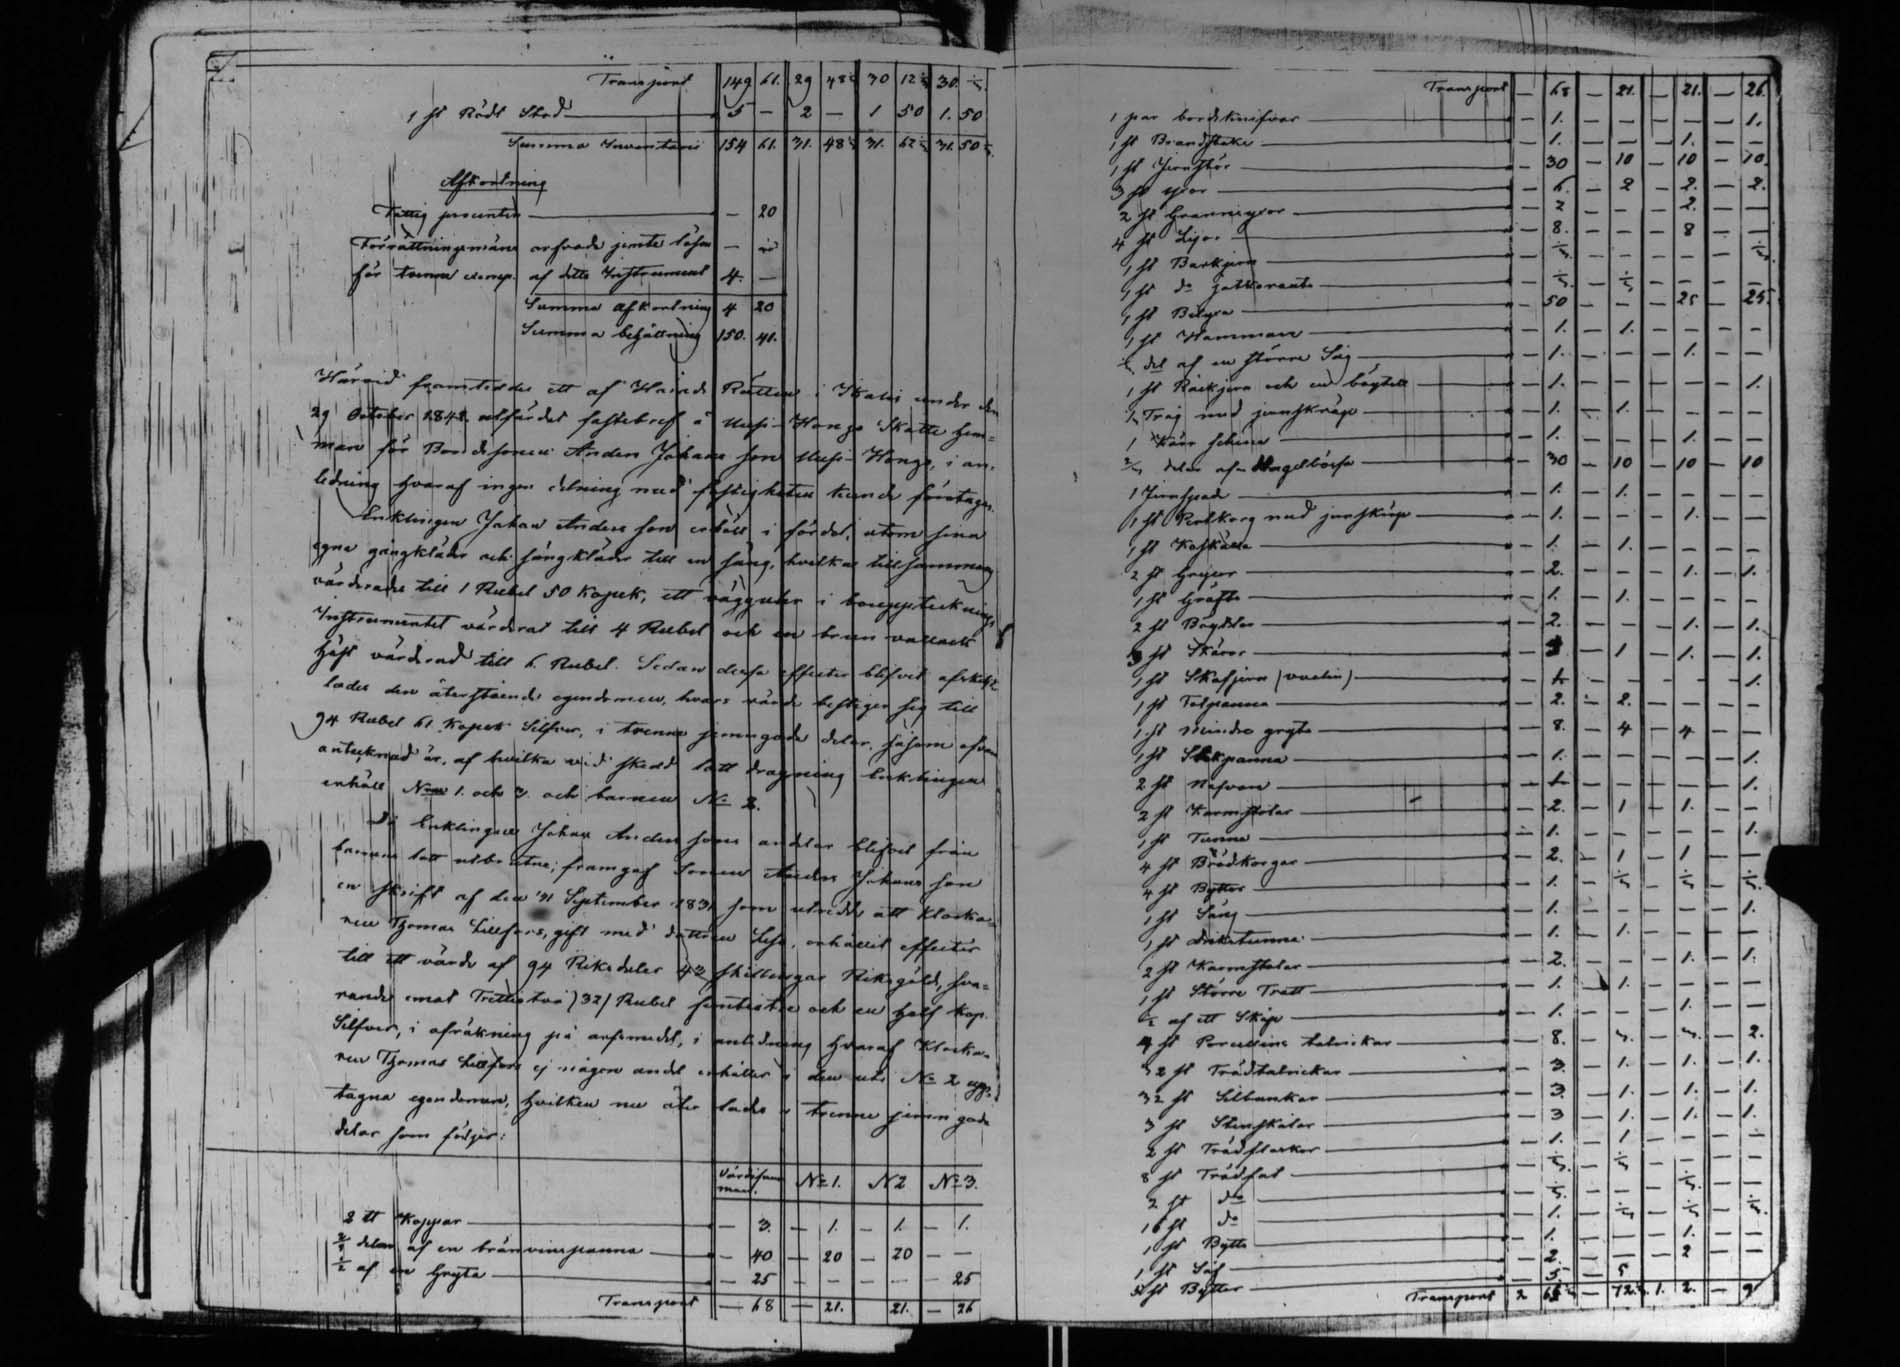 Transport 149 61. 29 48½ 30 12½ 30. ½
1 st Rödt Stod 5 — 2 — 1 50 1. 50
Summa Inventarii 154 61. 31. 48½ 31. 62½ 31. 50½
Afkortning
Fattig procenten — 20
Förrättningsmäns arfvode jemte lösen
för tvenne exempl. af detta Instrument 4. —
Summa afkortning 4 20
Summa behållning 150. 41.
Härvid framteddes ett af Härads Rätten i under den
29 October 1842 utfärdat fastebref å Uusi-Honge Skatte Hem=
man för Bondesonen Anders Johans son Uusi-Honge, i an=
ledning hvaraf ingen delning med fastigheten kunde företagas.
Enklingen Johan Anders son erhåll i fördel, utom sina
egna gångkläder och sängkläder till en säng, hvilka tillsammans
värderades till 1 Rubel 50 Kopek, ett väggur i boupptecknings
Instrumentet värderat till 4 Rubel och en brun vallack
Häst värderad till 6. Rubel. Sedan dessa effecter blifvit afskilde
lades den återstående egendomen, hvars värde bestiger sig till
94 Rubel 61 Kopek Silfver, i trenne jemngoda delar, såsom ofvan
antecknad är, af hvilka vid skedd lott dragning Enklingen
erhåll Nris 1. och 3. och barnen No 2.
Då Enklingen Johan Anders sons andelar blifvit från
barnens lott utbrutne, framgaf Sonen Anders Johans son
en skrift af den 21 September 1831 som utredde att Klocka=
ren Thomas Lillfors, gift med dottren Lisa, erhållit effecter
till ett värde af 94 Riksdaler 43 skillingar Riksgäld, sva=
rande emot Trettiotvå (32) Rubel femtiotre och en half kop.
Silfver, i afräkning på arfsmedel, i anledning hvaraf Klocka=
ren Thomas Lillfors ej någon andel erhåller i den uti No 2 upp=
tagna egendomen, hvilken nu åter lades i trenne jemngoda
delar som följer:
Värdesum
man. No 1. N 2 No 3.
2 tt Koppar — 3. — 1. — 1. — 1.
delar af en bränvinspanna — 40 — 20 — 20 — —
½ af en Gryta — 25 — — — — — 25
Transport — 68 — 21. 21. — 26
Transport — 68 — 21. — 21. — 26.
1 par bordsknifvar — 1. — — — — — 1.
1 st Brandstake — 1. — — — 1. — —
1 st Jernstör — 30 — 10 — 10 — 10.
3 st yxor — 6. — 2 — 2. — 2.
2 st — 2 — — — 2. — —
4 st Lijor — 8. — — — 8 — —
1 st Barkjern — ½ — — — — — ½
1 st do — ½ — ½ — — — —
1 st — 50 — — — 25 — 25.
1 st Hammare — 1. — 1. — — — —
½ del af en större Såg — 1. — — — 1. — —
1 st och en — 1. — — — — — 1.
½ Tråg med jernskräp — 1. — 1. — — — —
1 — 1. — — — 1. — —
delar af Hagelbössa — 30 — 10 — 10 — 10
1 Jernspade — 1. — 1. — — — —
1 st med jernskräp — 1. — — — 1. — —
1 st Koskälla — 1. — 1. — — — —
2 st — 2. — — — 1. — 1.
1 st Gräfta — 1. — 1. — — — —
2 st — 2. — — — 1. — 1.
3 st Skäror — 3 — 1 — 1. — 1.
1 st Skafjern — 1. — — — — — 1.
1 st — 2. — 2. — — — —
1 st Mindre gryta — 8. — 4 — 4 — —
1 st Stekpanna — 1. — — — — — 1.
2 st Nafvare — 1. — — — — — 1.
2 st Karmstolar — 2. — 1 — 1. — —
1 st Tunna — 1. — — — — — 1.
4 st Brödkorgar — 2. — 1 — 1 — —
4 st Byttor — 1. — ½ — ½ — ½
1 st Säng — 1. — — — — — 1.
1 st Drickstunna — 1. — 1. — — — —
2 st Karmstolar — 2. — — — 1. — 1.
1 st Större Tratt — 1. — 1. — — — —
½ af ett Skåp — 1. — — — 1. — —
4 st Porcellins talrickar — 8. — 3. — 3. — 2.
3 2 st Trädtalrickar — 3. — 1. — 1. — 1.
3 2 st Silbunkar — 3. — 1. — 1. — 1.
3 st Stenskålar — 3 — 1. — 1. — 1.
2 st Trädflaskor — 1. — 1 — — — —
8 st Trädfat — ½ — ½ — — — —
2 st do — ½ — — — ½ — —
16 st do — 1. — ½ — ½ — ½
1 st Bytta — 1. — — — 1. — —
1 st Så — 2. — — — 2 — —
st Byttor — 5. — 5
Transport 2 — 72½ 1. 2. — 9